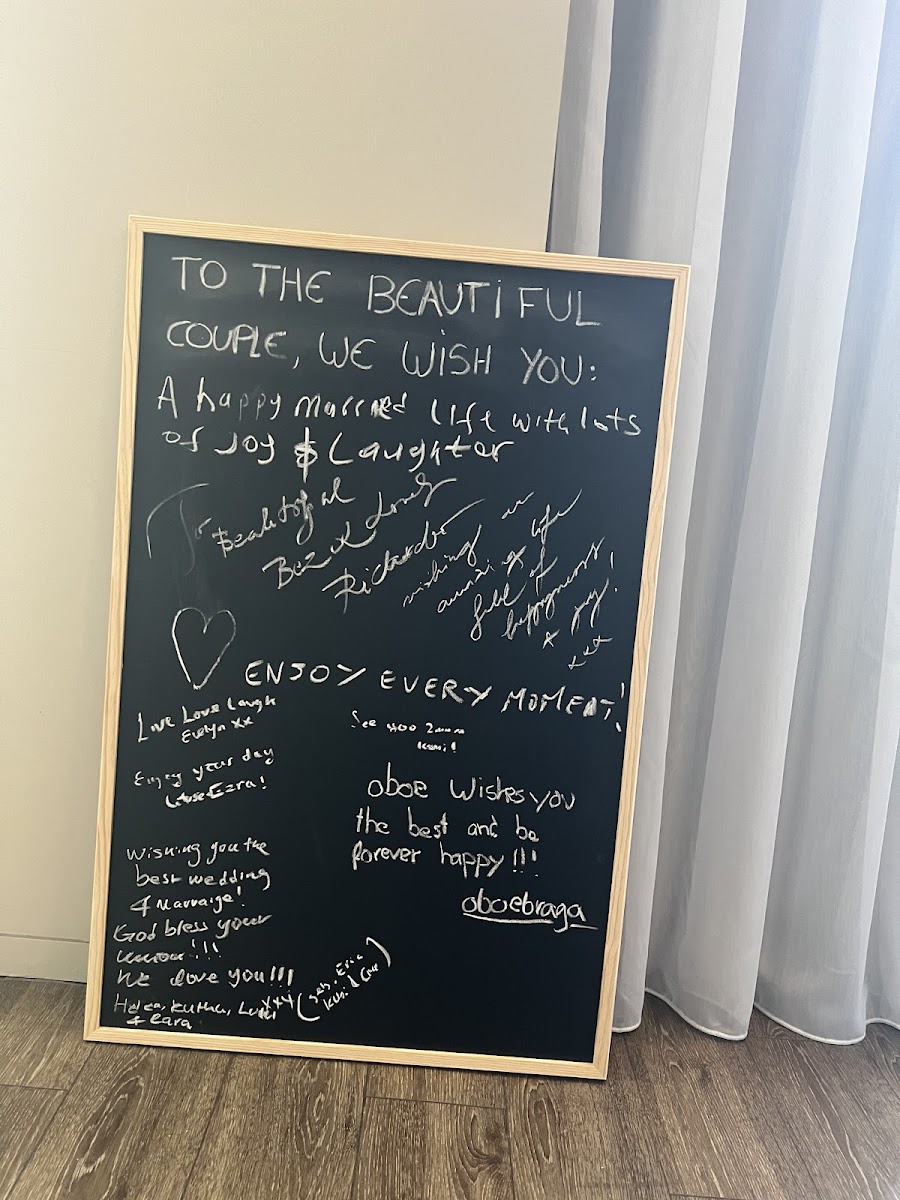 TO THE BEAUTIFUL
COUPLE, WE WISH YOU:
A happy Married Life with lots
of Joy & Laughter
To Beautiful
Bez & Lovely
Richardo
wishing an
amazing life
full of
happyness
& joy!
xxx
ENJOY EVERY MOMENT!
Live Love Laugh
Evelyn xx
See you
Enjoy your day
Ezra!
oboe Wishes you
the best and be
forever happy!!!
oboebraga
Wishing you the
best wedding
& Marraige!
God bless your
union!!!
We love you!!!
xxx
& Cara